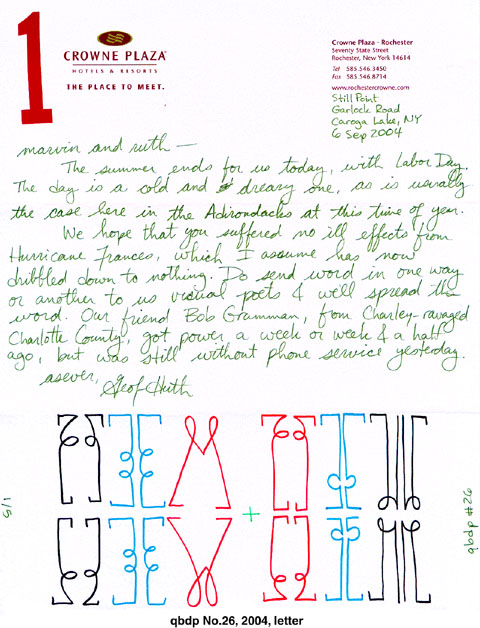 1
CROWNE PLAZA®
HOTELS & RESORTS
THE PLACE TO MEET.
Crowne Plaza - Rochester
Seventy State Street
Rochester, New York 14614
Tel 585.546.3450
Fax 585.546.8714
www.rochestercrowne.com
Still Point
Garlock Road
Caroga Lake, NY
6 Sep 2004
marvin and ruth—
The summer ends for us today, with Labor Day.
The day is a cold and dreary one, as is usually
the case here in the Adirondacks at this time of year.
We hope that you suffered no ill effects from
Hurricane Frances, which I assume has now
dribbled down to nothing. Do send word in one way
or another to us visual poets & we'll spread the
word. Our friend Bob Grumman, from Charley-ravaged
Charlotte County, got power a week or week & a half
ago, but was still without phone service yesterday.
as ever, Geof Huth
+
1/5
qbdp #26
qbdp No.26, 2004, letter